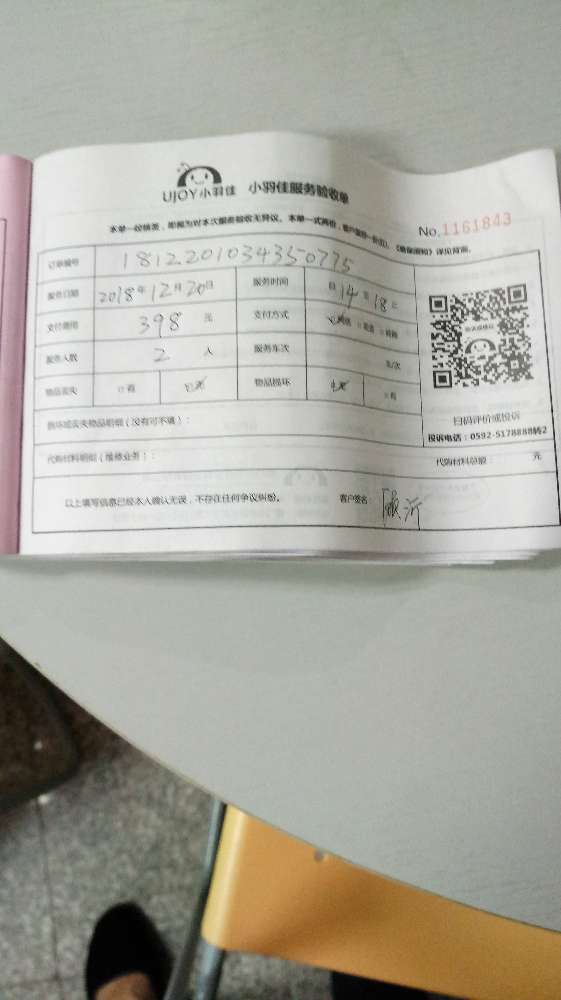 UJOY小羽佳 小羽佳服务验收单
No.1161843
本单一经核签，即视为对本次服务验收无异议。本单一式两份，
详见背面。
订单编号 1812201034350775
服务日期 2018年12月20日 服务时间 自14至18止
支付费用 398元 支付方式
服务人数 2人 服务车次 车/次
物品丢失 □有 物品损坏 □有
扫码评价或投诉
损坏或丢失物品明细（没有可不填）：
投诉电话：0592-5178888转2
代购材料明细（维修业务）： 代购材料总额： 元
以上填写信息已经本人确认无误，不存在任何争议纠纷。 客户签名：